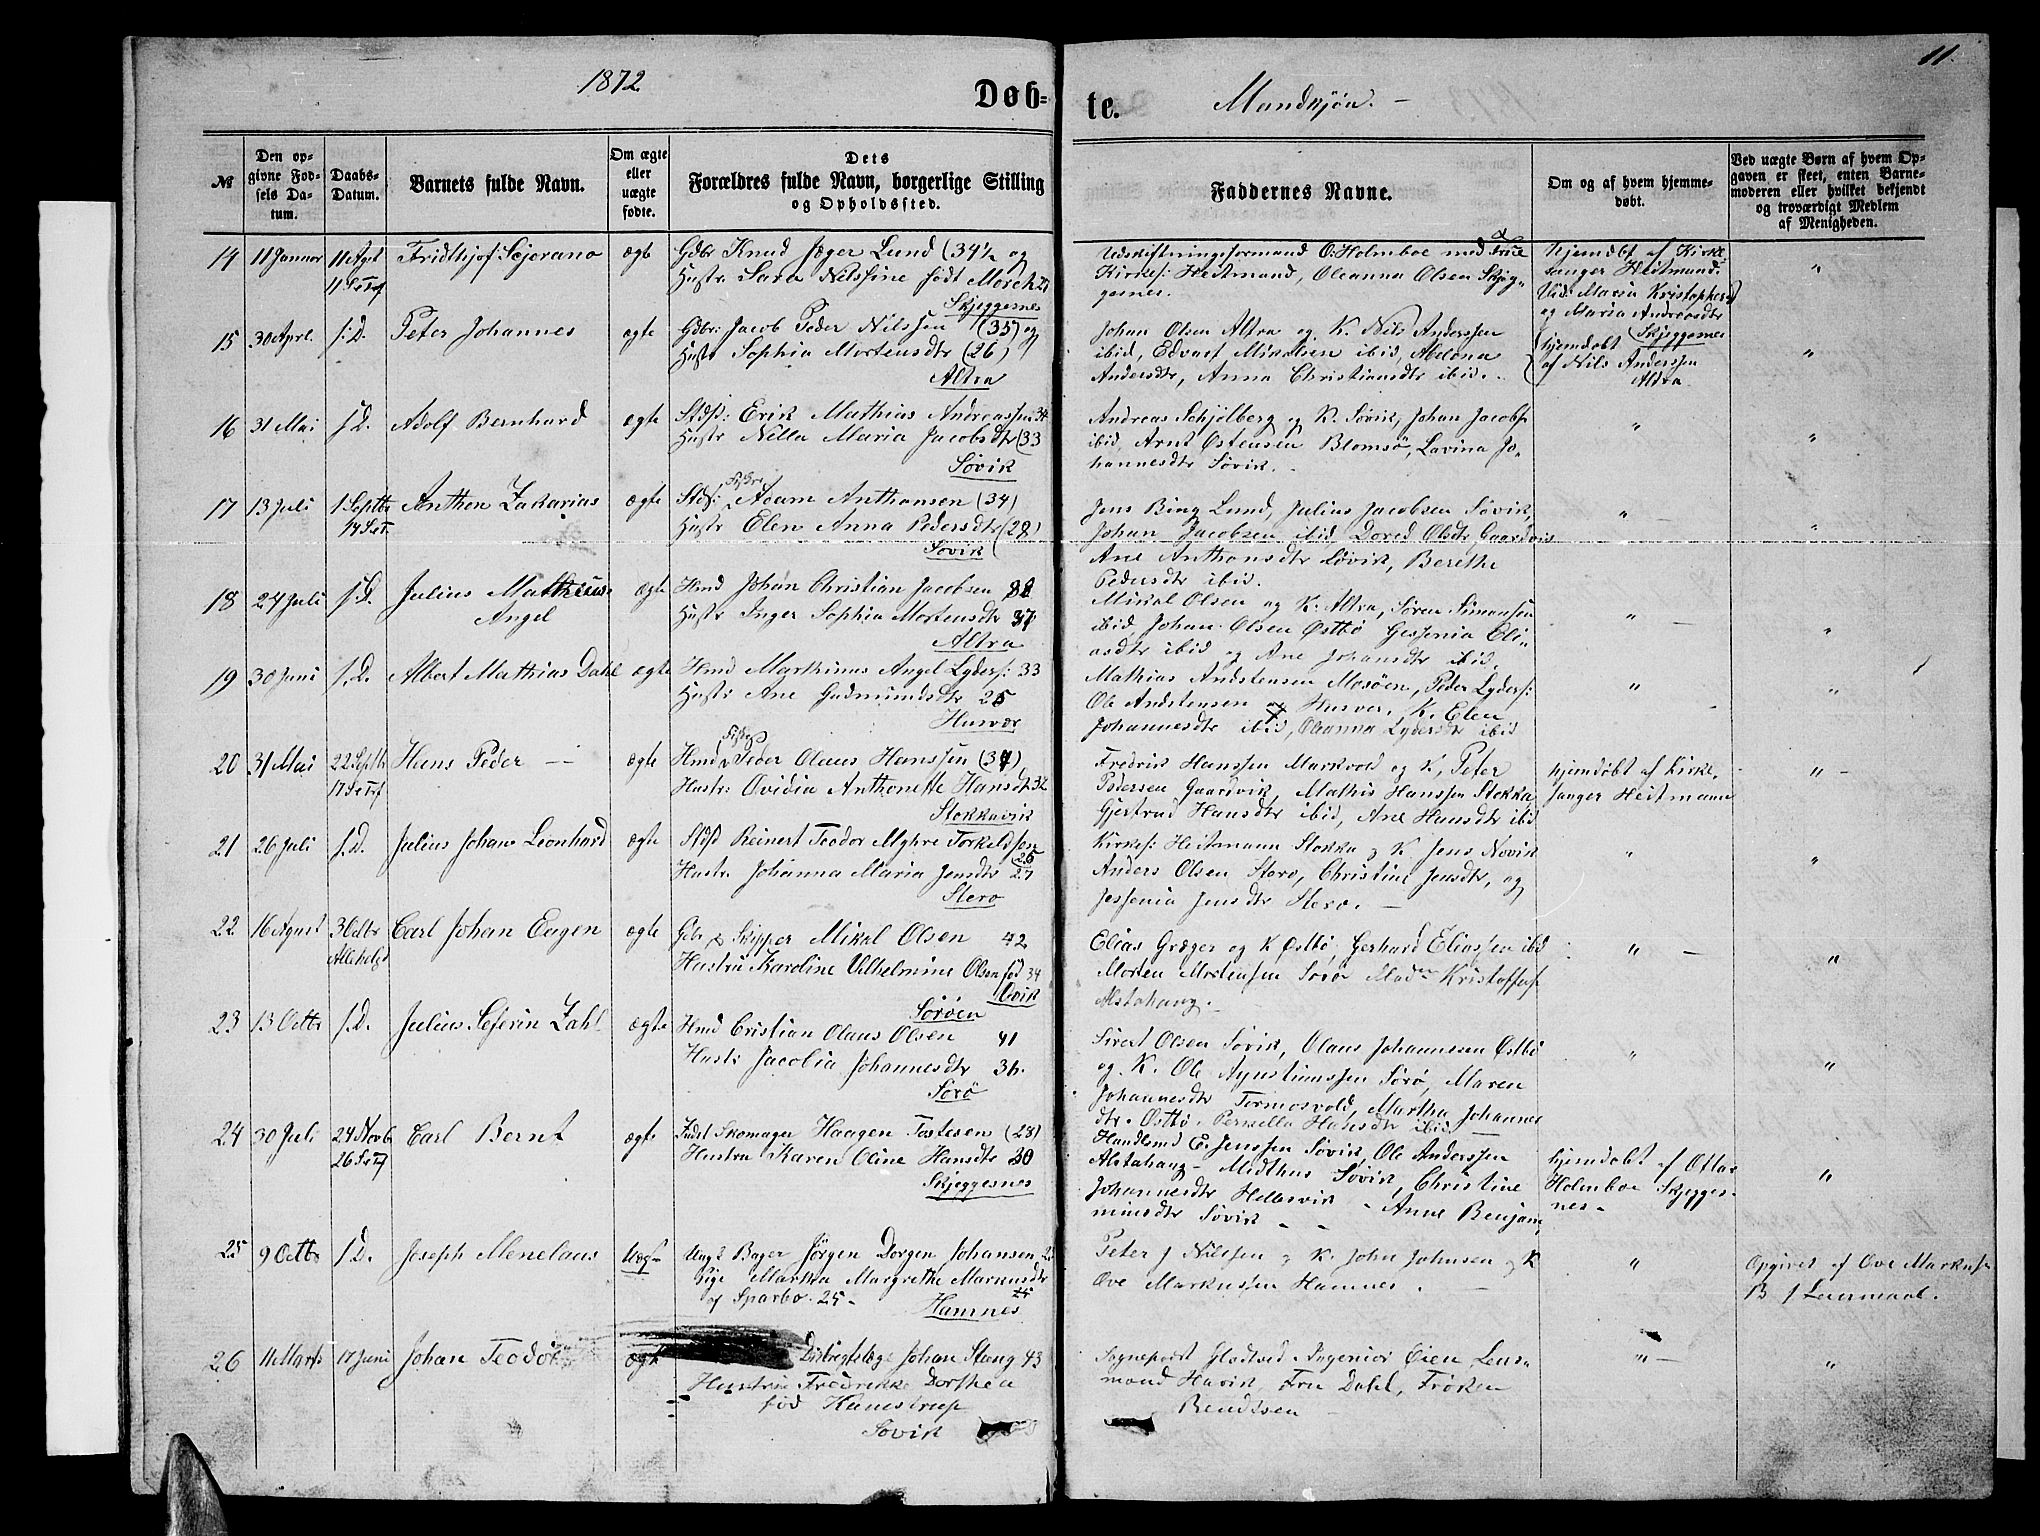 1872
Døb=
te.
Mandkjøn. -
11.
№
Den op-
givne Fød-
sels Da-
tum.
Daabs-
Datum.
Barnets fulde Navn.
Om ægte
eller
uægte
fødte.
Dets
Forældres fulde Navn, borgerlige Stilling
og Opholdssted.
Faddernes Navne.
Om og af hvem hjemme-
døbt.
Ved uægte Børn af hvem Op-
gaven er skeet, enten Barne-
moderen eller hvilket bekjendt
og troværdigt Medlem
af Menigheden.
14 11 Januar
ægte
Gdbr Knud Jæger Lund (34½ og
Hustr. Sara Nilssine født Morch
Skjeggesnes
Udskiftningsformand O: Holmboe med Frue
Kirkes: Heitmand, Oleanna Olsen Skjeg-
gesnes.
Hjemdøbt af Kirke
sanger Heitmand.
Vid: Maria Kristophers
og Maria Andreasdtr
Skjeggesnes
"
15 30 Aprl. s.D. Peter Johannes ægte
Gdbr: Jacob Peder Nilssen (35) og
Hustr Sophia Mortensdtr (26)
Altra
Johan Olsen Altra og K. Nils Anderssen
ibid, Edvart Mikalsen ibid, Abelona
Andersdtr, Anna Christiansdtr ibid.
hjemdøbt
af Nils Anderssen
Altra
"
16 31 Mai s.D. Adolf Bernhard ægte
Stdsf: Erik Mathias Andreassen 34
Hustr Nella Maria Jacobsdtr (33
Søvik
Andreas Schjelberg og K. Søvik, Johan Jacobs
ibid, Arnt Østensen Blomsø, Lavina Jo-
hannesdtr Søvik. -
"
"
17 13 Juli 1 Septbr
14 S e T. Anthon Zakarias ægte
Stdsf: Fisker Adam Anthonsen (34)
Hustr Elen Anna Pedersdtr (28)
Søvik
Jens Bing Lund, Julius Jacobsen Søvik,
Johan Jacobsen ibid, Dored Olsdtr Gaardvik
Ane Anthonsdtr Søvik, Berethe
Pedersdtr ibid.
"
"
18 24 Juli s.D. Julius Mathias
Angel
ægte
Hmd Johan Christian Jacobsen
Hustr Inger Sophia Mortensdtr 37
Altra
Mikal Olsen og K. Altra, Søren Simonsen
ibid Johan Olsen Østbø Gesfenia Eli-
asdtr ibid og Ane Johansdtr ibid.
"
"
19 30 Juni s.D. Albert Mathias Dahl ægte
Hmd Markinus Angel Lyders: 33
Hustr Ane Gudmundsdtr 25
Husvær
Mathias Andstensen Mosøen, Peder Lyders:
Ole Andstensen og Husvær, K. Elen
Johannesdtr ibid, Oleanna Lydersdtr ibid
"
"
20 31 Mai 22 Septbr
17 S e Tf Hans Peder - ægte
Hmd Fisker Peder Olaus Hanssen (34)
Hustr: Ovidia Anthonette Hansdtr 32
Stokkavik
Fredrik Hanssen Markvold og K, Peter
Pedersen Gaardvik, Mathis Hanssen Stokka
Gjertrud Hansdtr ibid, Ane Hansdtr ibid
hjemdøbt af Kirke-
sanger Heitmann
"
21 26 Juli s.D. Julius Johan Leonhard ægte
Stdsf Reinert Teodor Myhre Torkeldsen
(25
Hustr. Johanna Maria Jensdtr 27
Stero
Kirkes: Heitmann Stokka og K. Jens Novik
Anders Olsen Stero, Christine Jensdtr, og
Jessenia Jensdtr Stero. -
"
"
22 16 August 3 Octbr
Allehelgd Carl Johan Eugen ægte
Gdbr & Skipper Mikal Olsen 42
Hustru Karoline Vilhelmine Olsen fød 34
Sørøen
Elias Græger og K Østbø, Gerhard Eliassen ibid
Morten Mortensen Sørø Mad Kristoffers
Alstahaug.
"
"
23 13 Octbr s.D. Julius Seferin Zahl ægte
Hmd Cristian Olaus Olsen 41
Hustr. Jacobia Johannesdtr 36.
Sørø
Sivert Olsen Søvik, Olaus Johannesen Østbø
og K. Ole Agustinussen Sørø, Maren
Johannesdtr Tormosvold, Martha Johannes
dtr Østbø. Pernella Hansdtr ibid
"
"
24 30 Juli 24 Novb
26 S e T Carl Bernt ægte
Indst Skomager Haagen Tostesen (28)
Hustru Karen Oline Hansdtr 30
Skjeggesnes
Handlsmd E. Jenssen Søvik, Ole Anderssen
Alstahaug - Midthus Søvik, Christine
Johannesdtr Hellesvik - Anne Benjam,
minsdtr Søvik - -
hjemdøbt af Ottar
Holmboe Skjegges-
nes -
"
25 9 Octbr s.D. Joseph Menelaus Uægte
Ungk Bager Jørgen Dorgen Johansen
Pige Martha Margrethe Markusdtr
af Sparbo. 25 -
Hamnes
Peter J Nilssen og K. John Johnsen og K
Ove Markussen Hamnes. -
"
Opgivet af Ove Markuss
B f Leiermaal.
26 11 Marts 17 Juni Johan Teodor ægte
Distrigtslæge Johan Steng 43
Hustru Fredrikke Dorthea
fød Kamstrup
Søvik
Sognepræst Glodtved, Ingeniør Øien, Lens-
mand Havik, Fru Dahl, Frøken
Bendtsen -
" -
"